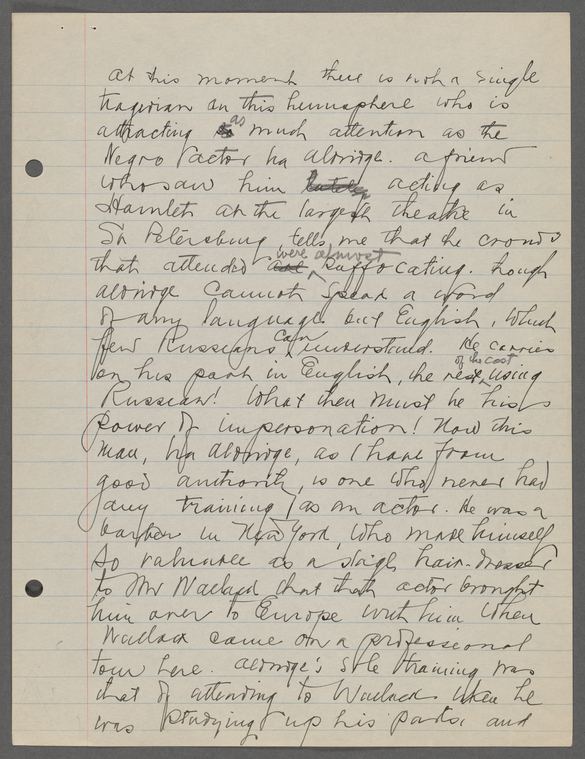 At this moment there is not a single
tragedian on this hemisphere who is
attracting as much attention as the
Negro actor Ira Aldridge. A friend
who saw him lately acting as
Hamlet at the largest theatre in
St Petersburg, tells me that the crowds
that attended were almost suffocating. Though
Aldridge cannot speak a word
of any language but English, which
few Russians can understand. He carries
on his part in English, the rest of the cast using
Russian! What then must be his
power of impersonation! Now this
man, Ira Aldridge, as I have from
good authority, is one who never had
any training as an actor. He was a
barber in New York, who made himself
so valuable as a stage hair-dresser
to Mr Wallack that that actor brought
him over to Europe with him when
Wallack came on a professional
tour here. Aldridge's sole training was
that of attending to Wallack when he
was studying up his parts, and